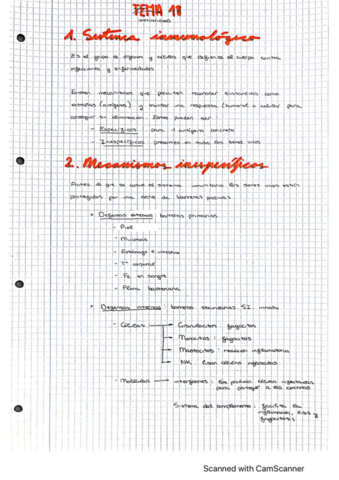 TEMA 18
INMUNIDAD
1. Sistema inmunológico
Es el grupo de órganos y células que defiende el cuerpo contra
infecciones y enfermedades
Existen mecanismos que permiten reconocer sustancias como
extrañas (antígenos) y montar una respuesta (humoral o celular) para
conseguir su eliminación. Estos pueden ser:
- Específicos: para 1 antígeno concreto
- Inespecíficos: presentes en todos los seres vivos
2. Mecanismos inespecíficos
Antes de que se active el sistema inmunitario los seres vivos están
protegidos por una serie de barreras pasivas
• Defensas externas: barreras primarias
- Piel
- Mucosas
- Estómago e intestino
- Tª corporal
- Fe en sangre
- Flora bacteriana
• Defensas internas: barreras secundarias. S.I. innato
- Células → Granulocitos: fagocitos
→ Monocitos: fagocitos
→ Mastocitos: reacción inflamatoria
→ NK: lisan células infectadas
- Moléculas → interferones: los producen células infectadas
para proteger a las cercanas
Sistema del complemento: facilita la
inflamación, lisis y
fagocitosis
Scanned with CamScanner